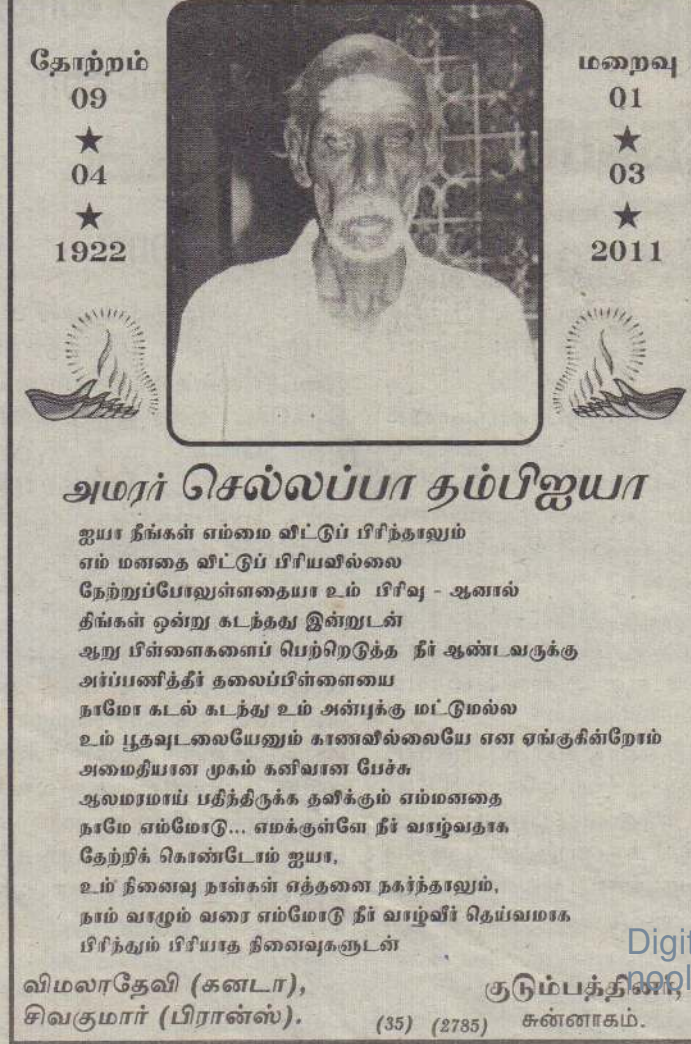 தோற்றம்
09
★
04
★
1922
மறைவு
01
★
03
★
2011
அமரர் செல்லப்பா தம்பிஐயா
ஐயா நீங்கள் எம்மை விட்டுப் பிரிந்தாலும்
எம் மனதை விட்டுப் பிரியவில்லை
நேற்றுப்போலுள்ளதையா உம் பிரிவு - ஆனால்
திங்கள் ஒன்று கடந்தது இன்றுடன்
ஆறு பிள்ளைகளைப் பெற்றெடுத்த நீர் ஆண்டவருக்கு
அர்ப்பணித்தீர் தலைப்பிள்ளையை
நாமோ கடல் கடந்து உம் அன்புக்கு மட்டுமல்ல
உம் பூதவுடலையேனும் காணவில்லையே என ஏங்குகின்றோம்
அமைதியான முகம் கனிவான பேச்சு
ஆலமரமாய் பதிந்திருக்க தவிக்கும் எம்மனதை
நாமே எம்மோடு... எமக்குள்ளே நீர் வாழ்வதாக
தேற்றிக் கொண்டோம் ஐயா,
உம் நினைவு நாள்கள் எத்தனை நகர்ந்தாலும்,
நாம் வாழும் வரை எம்மோடு நீர் வாழ்வீர் தெய்வமாக
பிரிந்தும் பிரியாத நினைவுகளுடன்
விமலாதேவி (கனடா),
சிவகுமார் (பிரான்ஸ்).
(35) (2785)
குடும்பத்தினர்,
சுன்னாகம்.
Digit
nool